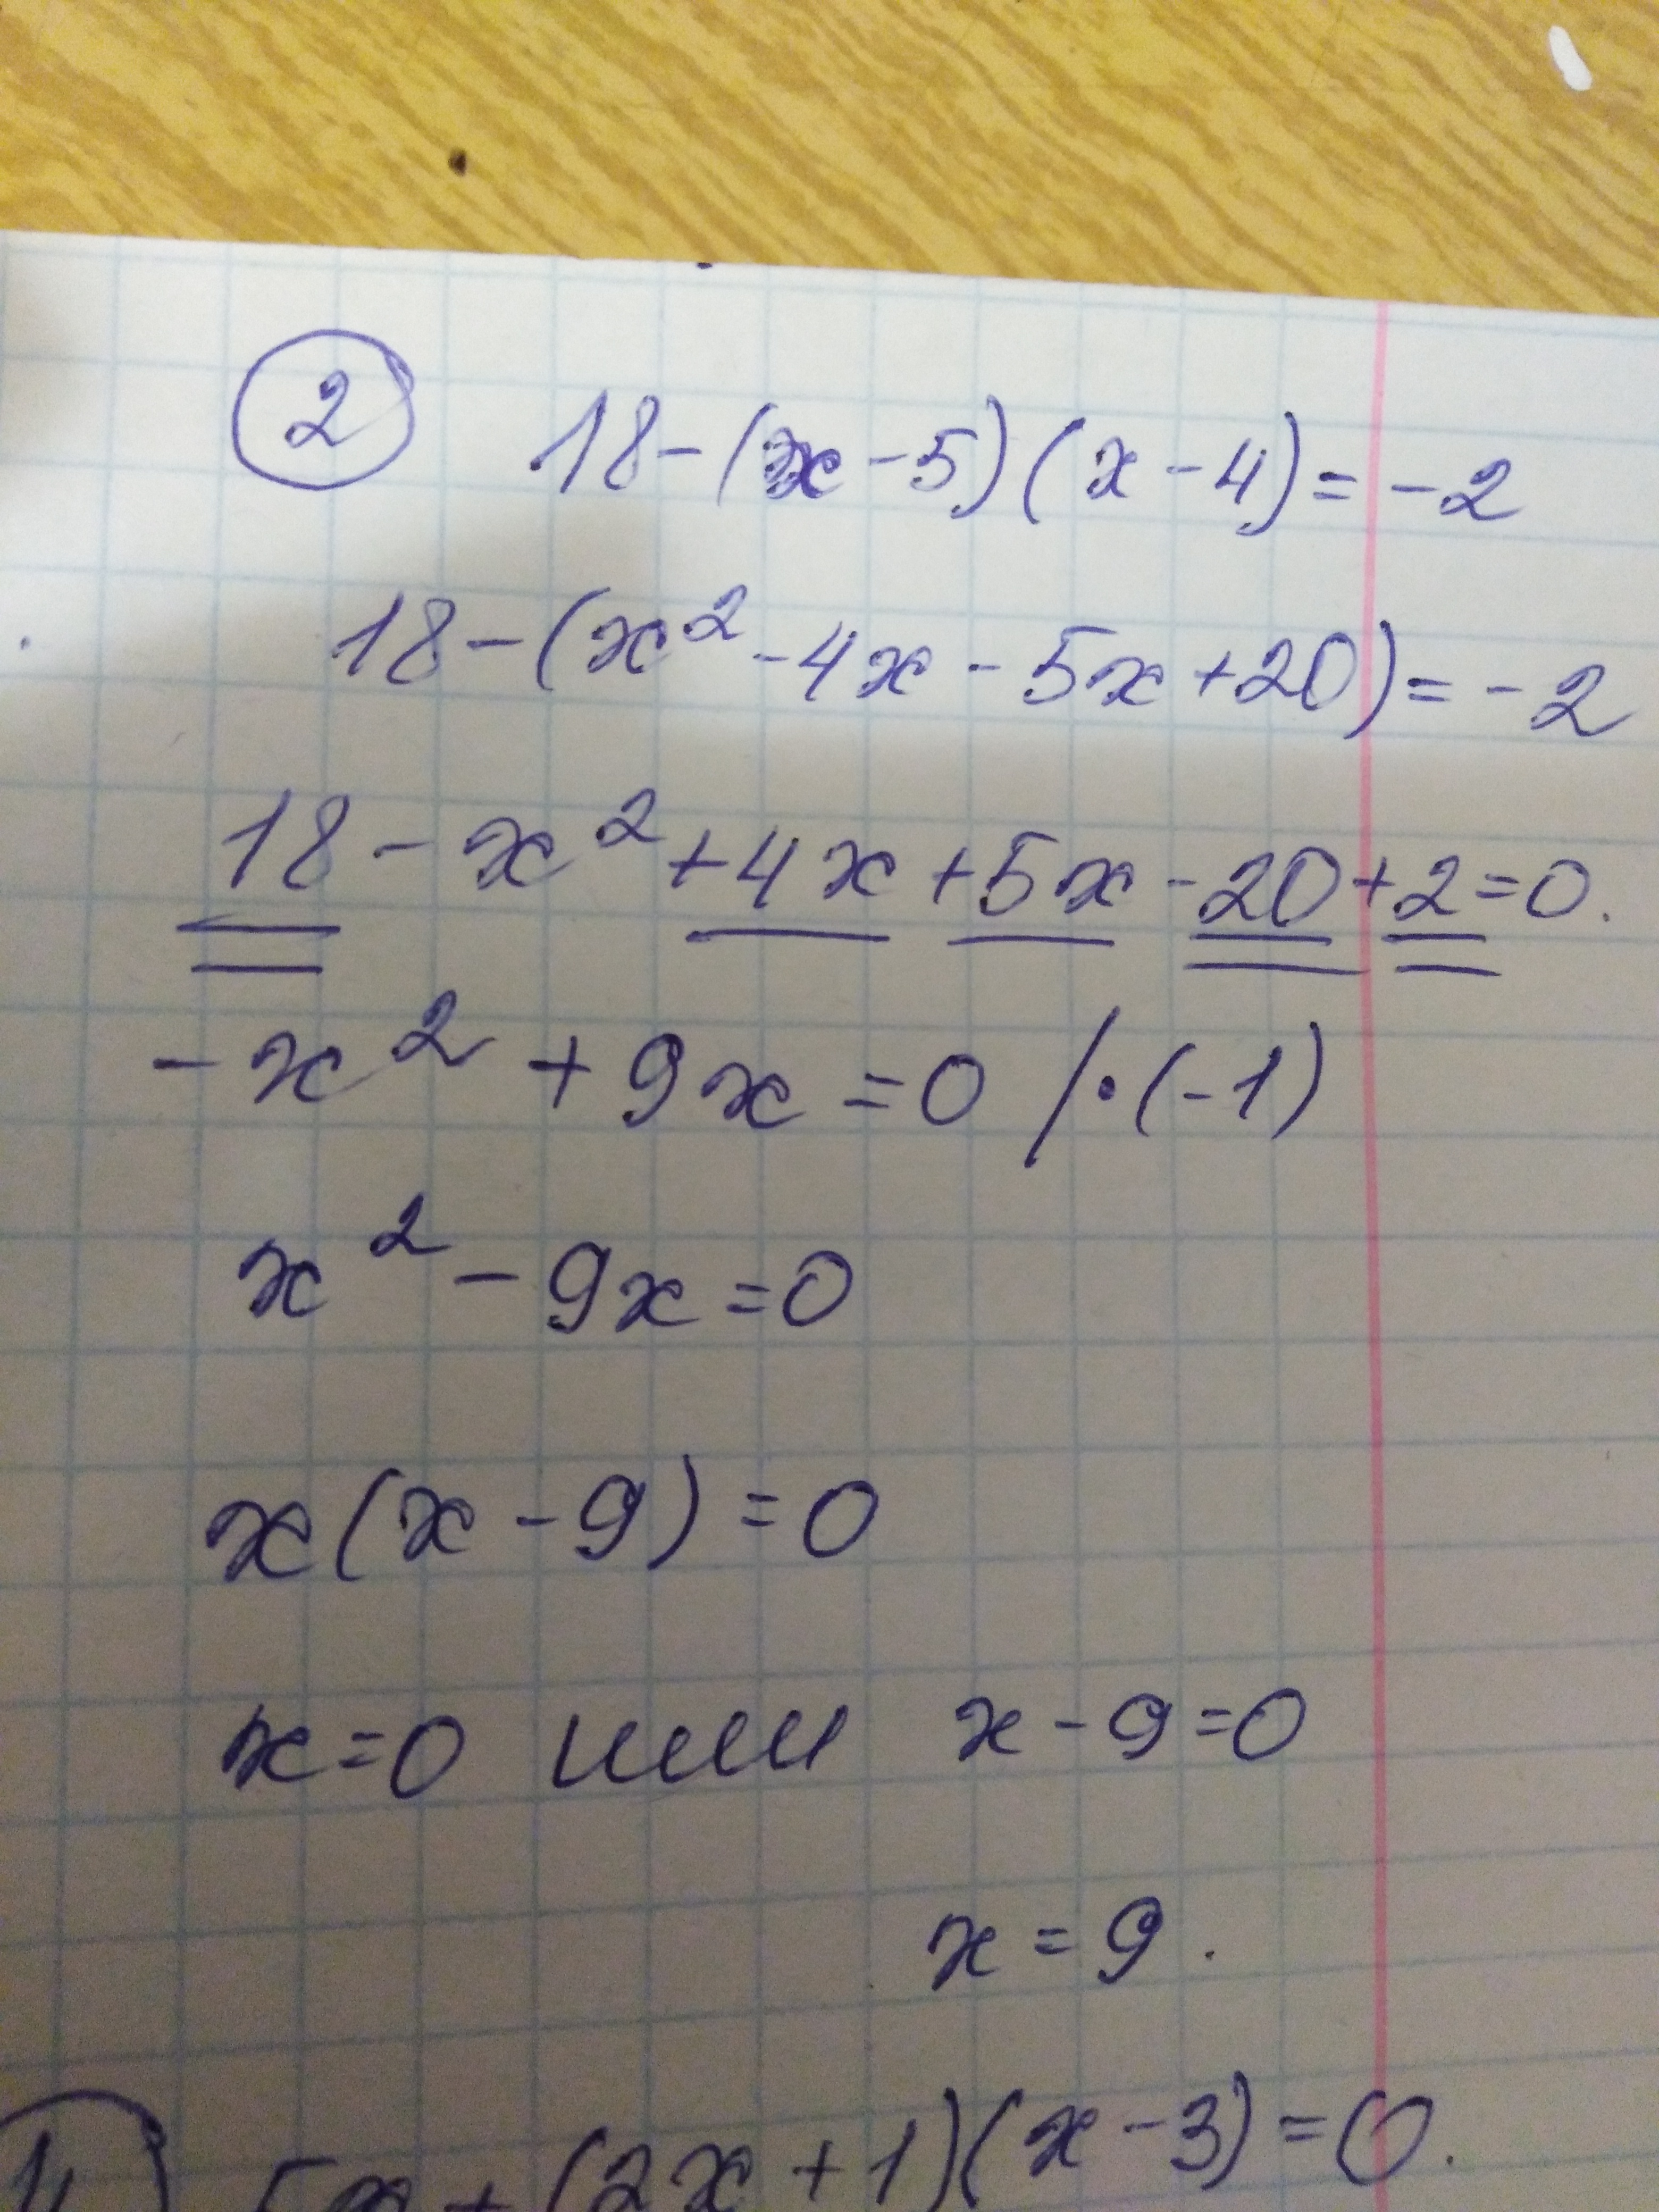 2 18-(x-5)(x-4)=-2
18-(x²-4x-5x+20)=-2
18-x²+4x+5x-20+2=0.
-x²+9x=0 /·(-1)
x²-9x=0
x(x-9)=0
x=0 или x-9=0
x=9.
5x+(2x+1)(x-3)=0.